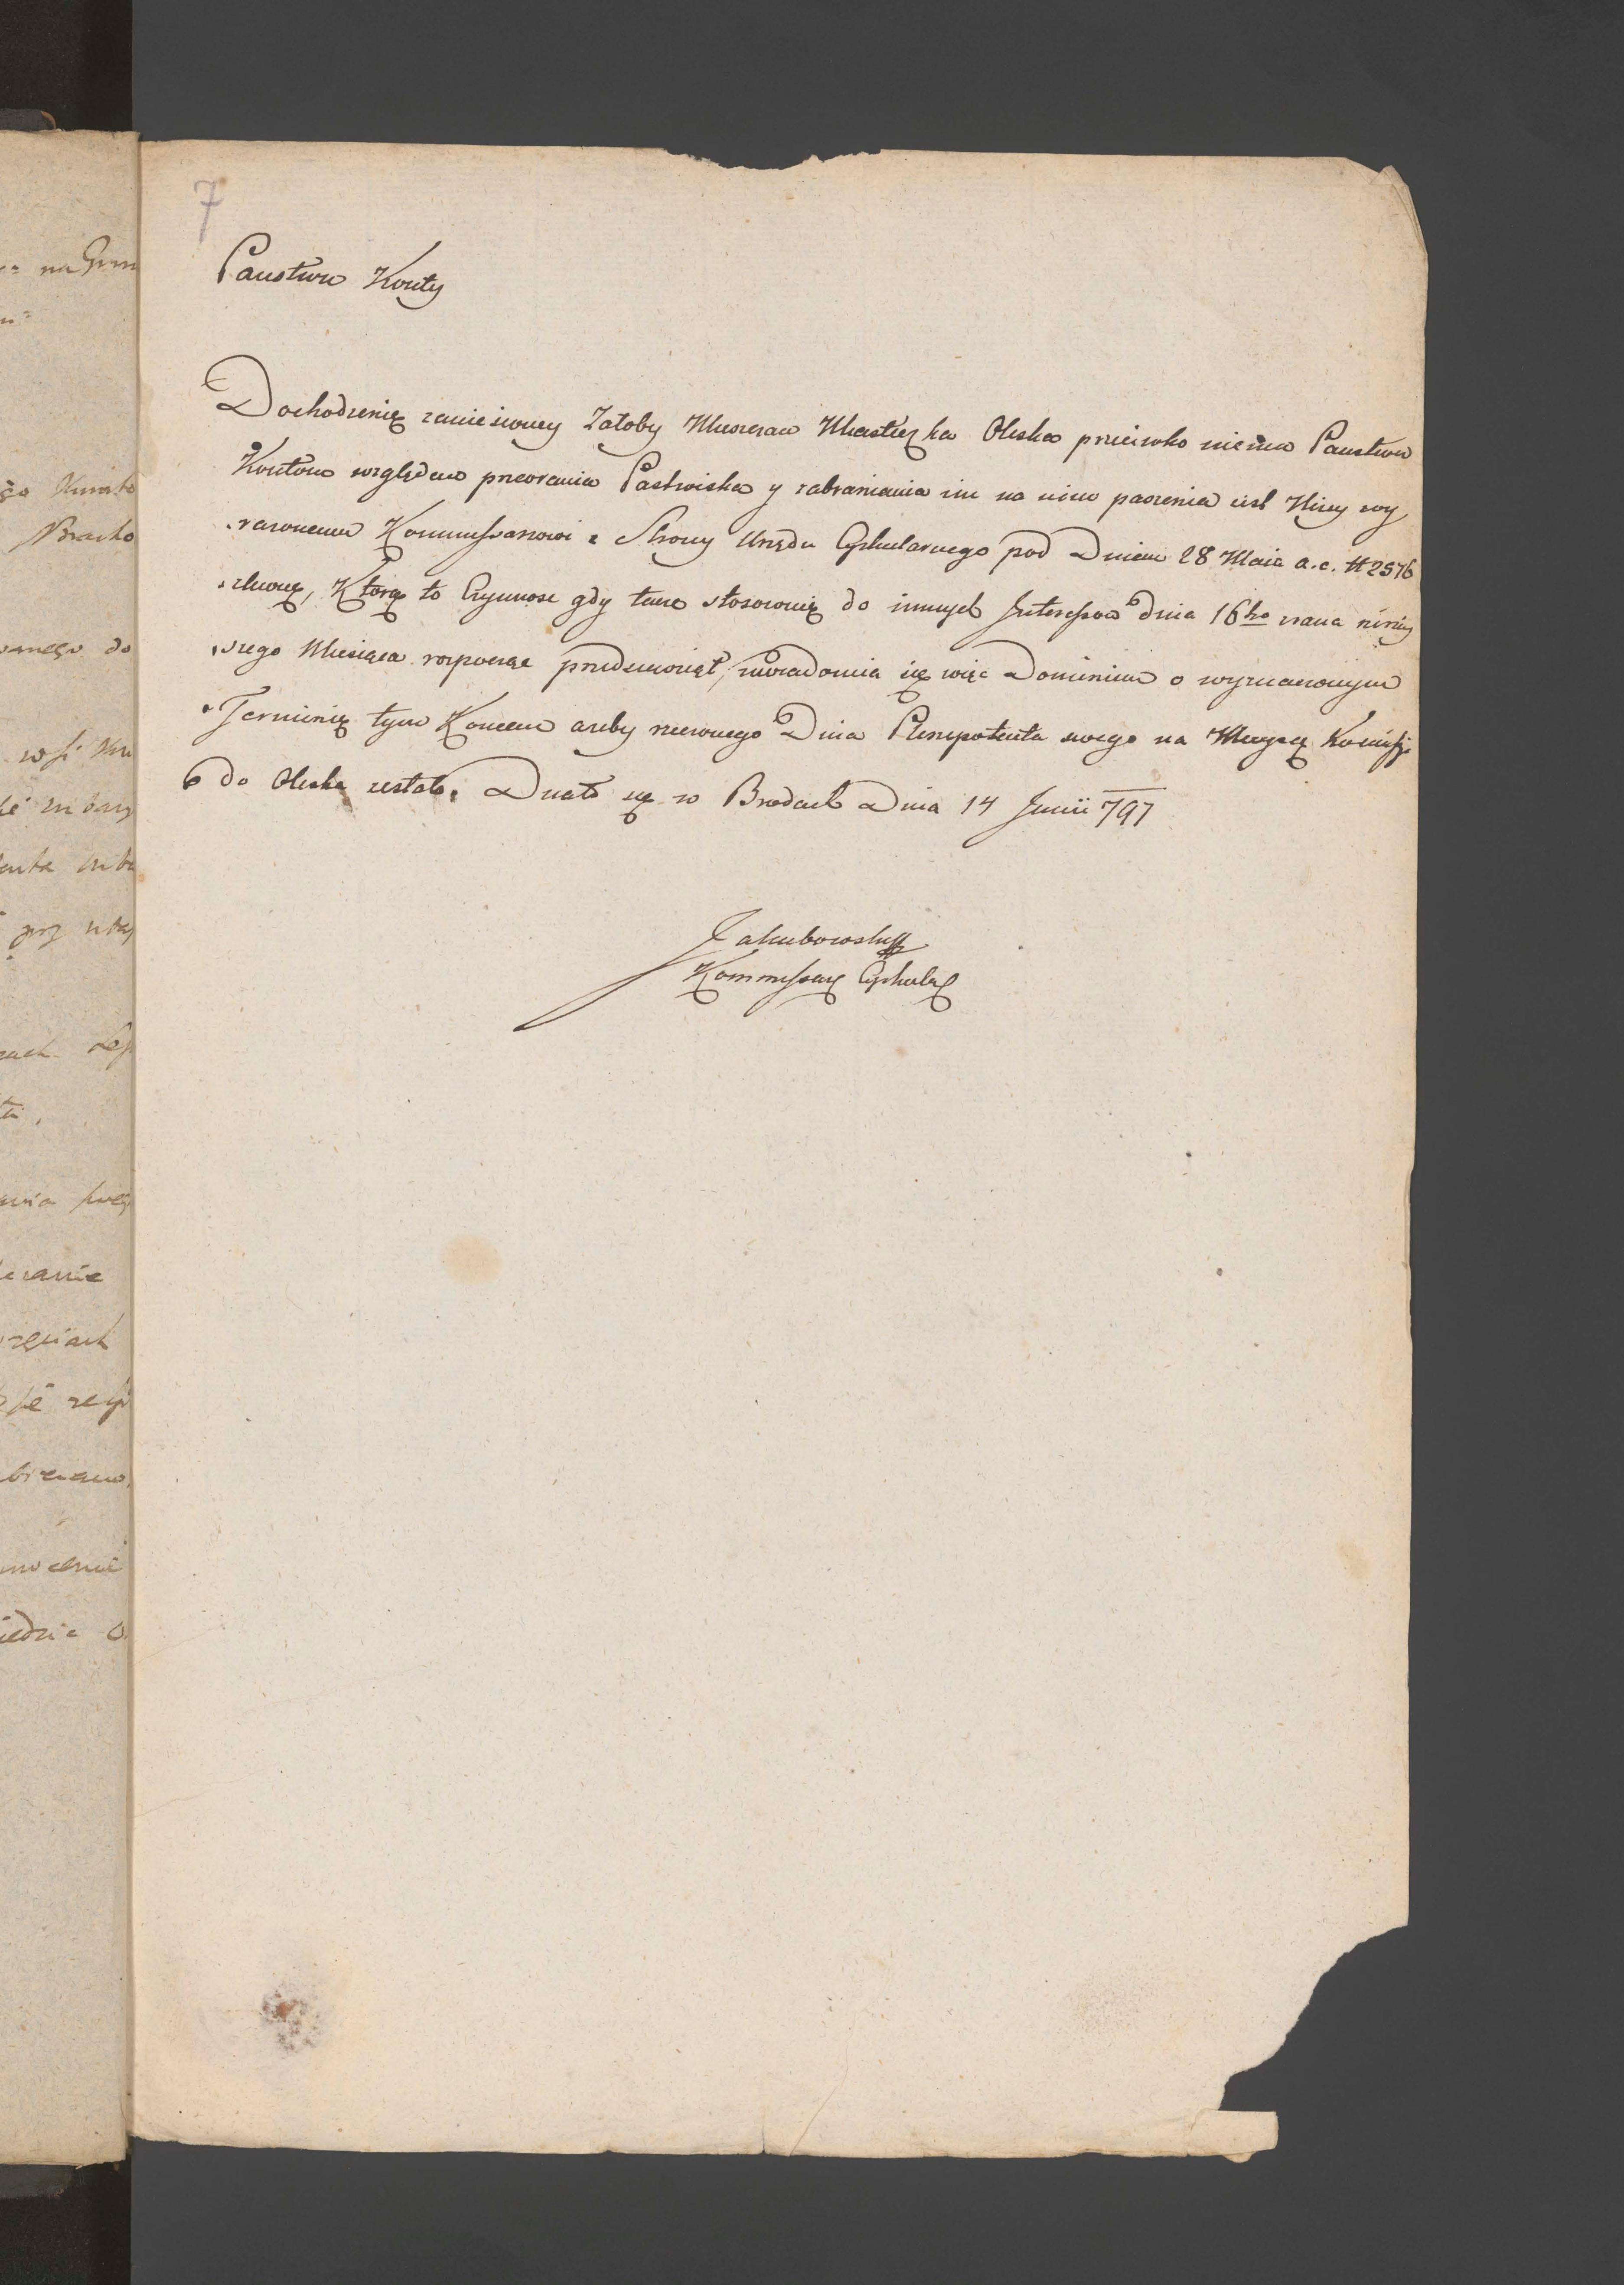 7
Państwu Konty
Dochodzenię zaniesioney Załoby Mieszczan Miasteczka Oleska przeciwko Państwu
Kontom względem przeorania Pastwiska y zabraniania im na nim paszenia iest Niżey wy
razonemu Kommissarzowi z Strony Urzędu Cyrkularnego pod Dniem 28 Maia a. c. # 2576
zlecone, Ktorą to Czynnosc gdy tenze stosownię do innych Interessow dnia 16ho zrana niniey
szego Miesiąca rozpocząć przedsiewziął, uwiadomia się więc Dominium o wyznaczonym
Terminię tym Koncem azeby rzeczonego Dnia Plenipotenta swego na Mieysce Komissji
do Oleska zesłało. Działo się w Brodach Dnia 14 Junii 797
Jakubowski
Kommissarz Cyrkular
na Grun
Bracko
do
wsi
Lej
ti,
erania